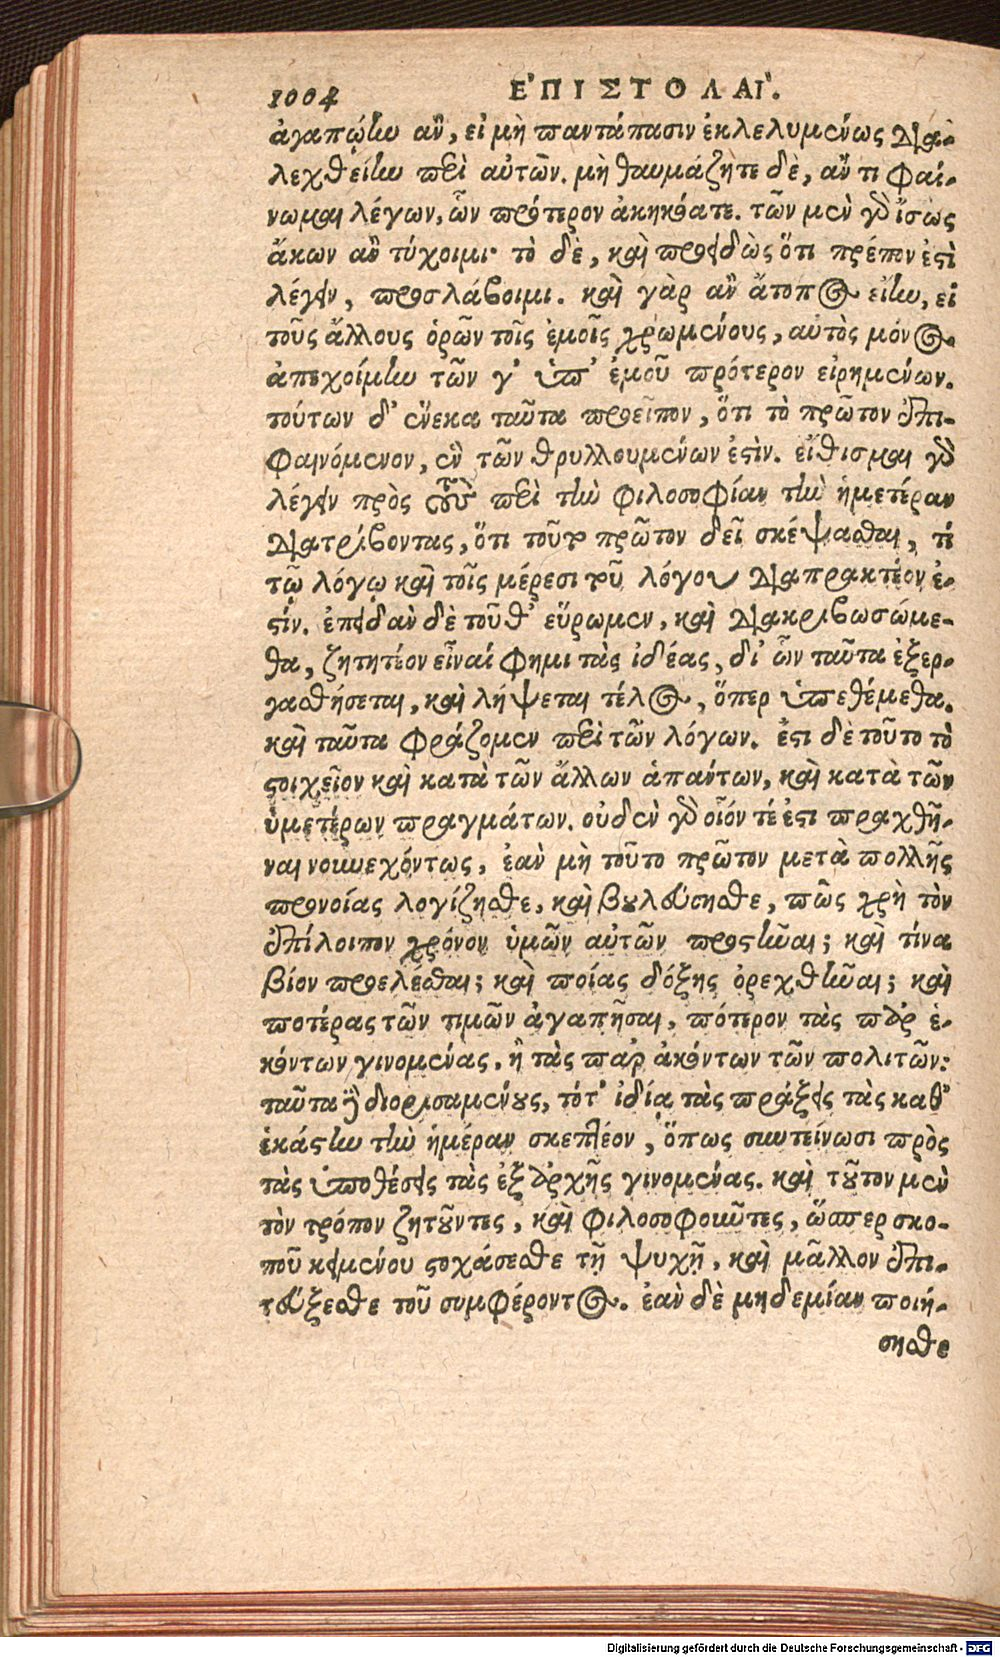 1004 ἘΠΙΣΤΟΛΑΊ.
ἀγαπῴην ἂν, εἰ μὴ παντάπασιν ἐκλελυμένως δια-
λεχθείην περὶ αὐτῶν. μὴ θαυμάζητε δὲ, ἄν τι φαί-
νωμαι λέγων, ὧν πρότερον ἀκηκόατε. τῶν μὲν γὸ ἴσως
ἄκων ἂν τύχοιμι· τὸ δὲ, καὶ προειδὼς ὅτι πρέπον ἐστὶ
λέγειν, προσλάβοιμι. καὶ γὰρ ἂν ἄτοπος εἴην, εἰ
τοῦς ἄλλους ὁρῶν τοῖς ἐμοῖς χρωμένους, αὐτὸς μόνος
ἀπεχοίμην τῶν γ' ὑπ' ἐμοῦ πρότερον εἰρημένων.
τούτων δ' ἕνεκα ταῦτα προεῖπον, ὅτι τὸ πρῶτον ἐπι-
φαινόμενον, ἓν τῶν θρυλλουμένων ἐστὶν. εἴθισμαι γὸ
λέγειν πρὸς τοὺς περὶ τὴν φιλοσοφίαν τὴν ἡμετέραν
διατρίβοντας, ὅτι τοῦτο πρῶτον δεῖ σκέψασθαι, τί
τῷ λόγῳ καὶ τοῖς μέρεσι τοῦ λόγου διαπρακτέον ἐ-
στίν. ἐπειδὰν δὲ τοῦθ' εὕρωμεν, καὶ διακριβωσώμε-
θα, ζητητέον εἶναί φημι τὰς ἰδέας, δι' ὧν ταῦτα ἐξερ-
γασθήσεται, καὶ λήψεται τέλος, ὅπερ ὑπεθέμεθα.
καὶ ταῦτα φράζομεν περὶ τῶν λόγων. ἔστι δὲ τοῦτο τὸ
στοιχεῖον καὶ κατὰ τῶν ἄλλων ἁπάντων, καὶ κατὰ τῶν
ὑμετέρων πραγμάτων. οὐδὲν γὸ οἷόν τέ ἐστι πραχθῆ-
ναι νουνεχόντως, ἐὰν μὴ τοῦτο πρῶτον μετὰ πολλῆς
προνοίας λογίζησθε, καὶ βουλεύσησθε, πῶς χρὴ τὸν
ἐπίλοιπον χρόνον ὑμῶν αὐτῶν προστῆναι; καὶ τίνα
βίον προελέσθαι; καὶ ποίας δόξης ὀρεχθῆναι; καὶ
ποτέρας τῶν τιμῶν ἀγαπῆσαι, πότερον τὰς παρ ἑ-
κόντων γινομένας, ἢ τὰς παρ ἀκόντων τῶν πολιτῶν:
ταῦτα δὲ διορισαμένους, τότ' ἰδίᾳ τὰς πράξεις τὰς καθ'
ἑκάστην τὴν ἡμέραν σκεπτέον, ὅπως συντείνωσι πρὸς
τὰς ὑποθέσεις τὰς ἐξ ἀρχῆς γινομένας. καὶ τοῦτον μὲν
τὸν τρόπον ζητοῦντες, καὶ φιλοσοφοῦντες, ὥσπερ σκο-
ποῦ κειμένου στοχάσεσθε τῇ ψυχῇ, καὶ μᾶλλον ἐπι-
τεύξεσθε τοῦ συμφέροντος. ἐὰν δὲ μηδεμίαν ποιή-
σησθε
Digitalisierung gefördert durch die Deutsche Forschungsgemeinschaft - DFG